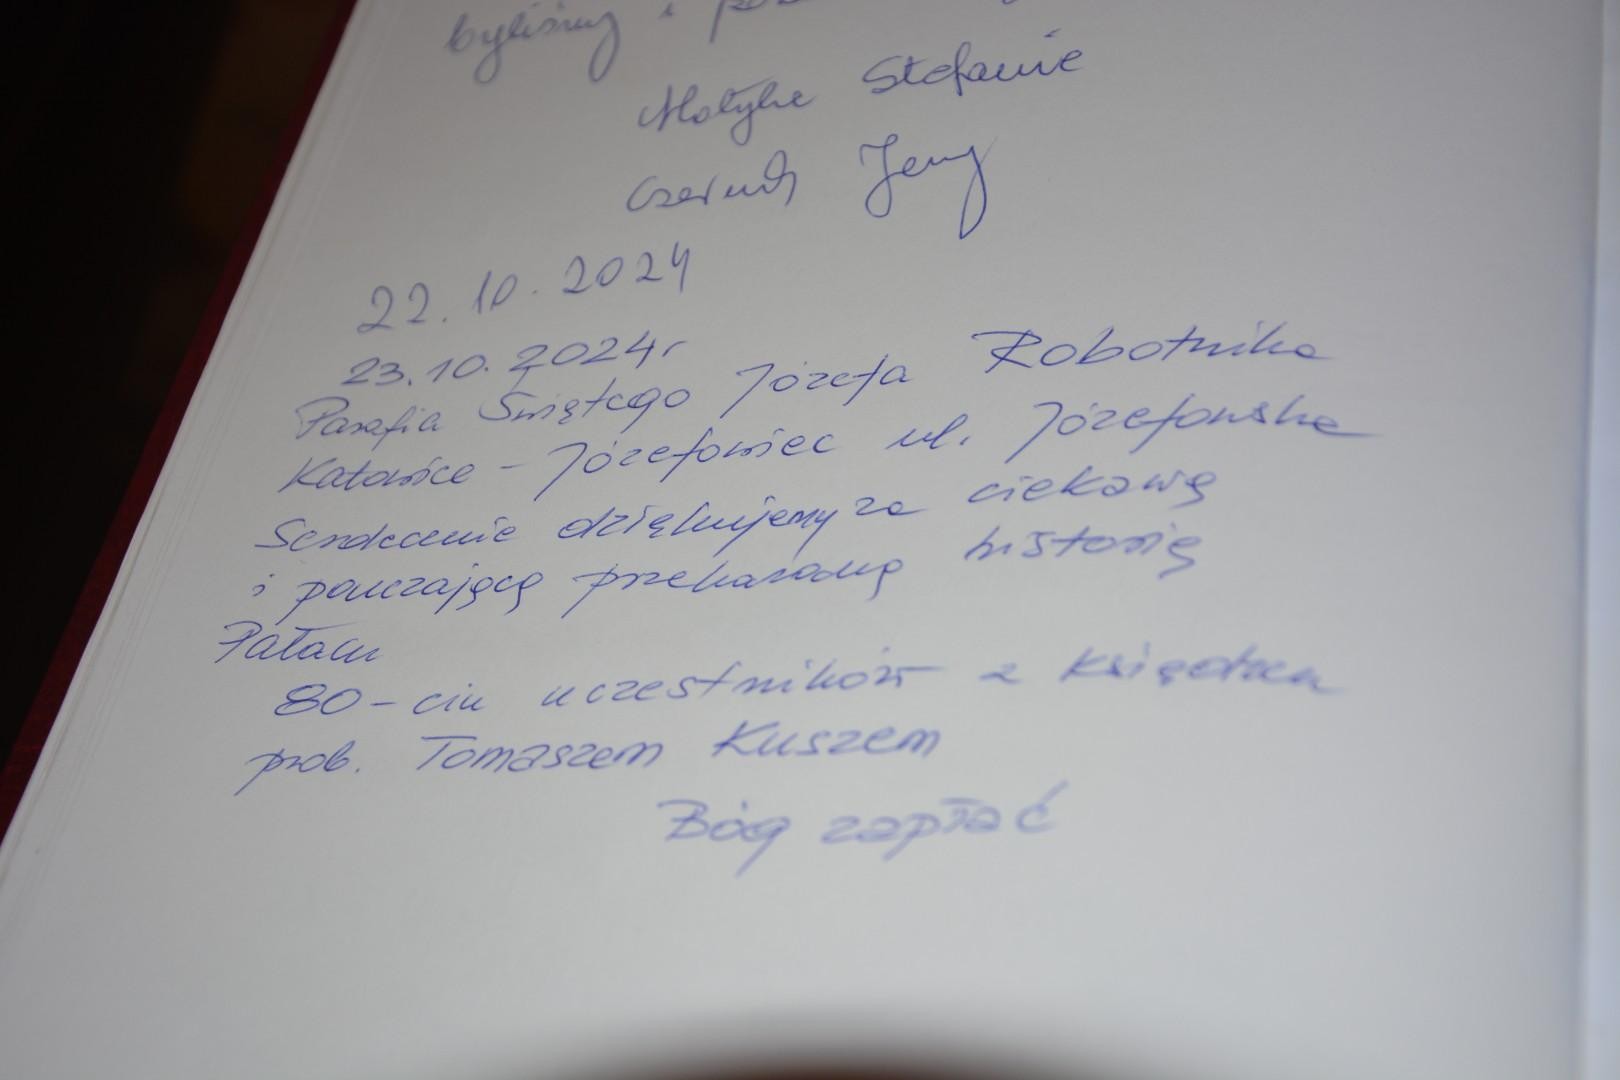 byliśmy i
Stefanie
Jerzy
22.10.2024
23.10.2024r
Parafia Świętego Józefa Robotnika
Katowice - Józefowiec ul. Józefowska
Serdecznie dziękujemy za ciekawą
i pouczającą przekazaną historię
Pałacu
80-ciu uczestników z księdzem
prob. Tomaszem Kuszem
Bóg zapłać